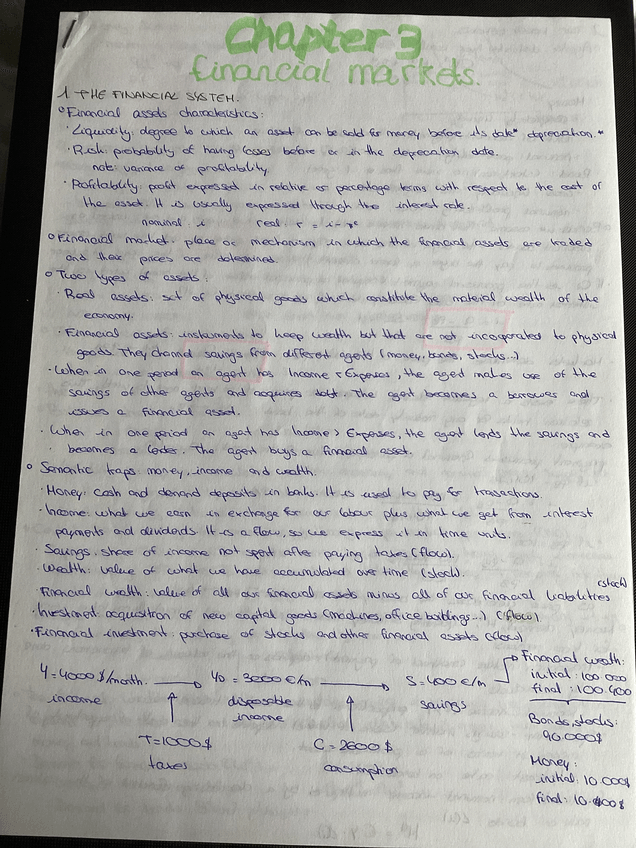 Chapter 3
financial markets.
1 THE FINANCIAL SYSTEM.
° Financial assets characteristics:
· Liquidity: degree to which an asset can be sold for money before its date* depreciation.*
· Risk: probability of having losses before or in the depreciation date.
note: variance of profitability
· Profitability: profit expressed in relative or percentage terms with respect to the cost of
the asset. It is usually expressed through the interest rate.
nominal: i real: r = i - πe
° Financial market: place or mechanism in which the financial assets are traded
and their prices are determined.
° Two types of assets:
· Real assets: set of physical goods which constitute the material wealth of the
economy.
· Financial assets: instruments to keep wealth but that are not incorporated to physical
goods. They channel savings from different agents (money, bonds, stocks...)
· When in one period an agent has Income < Expenses, the agent makes use of the
savings of other agents and acquires debt. The agent becomes a borrower and
issues a financial asset.
· When in one period an agent has Income > Expenses, the agent lends the savings and
becomes a lender. The agent buys a financial asset.
° Semantic traps: money, income and wealth.
· Money: cash and demand deposits in banks. It is used to pay for transactions.
· Income: what we earn in exchange for our labour plus what we get from interest
payments and dividends. It is a flow, so we express it in time units.
· Savings: share of income not spent after paying taxes (flow).
· Wealth: value of what we have accumulated over time (stock).
(stock)
Financial wealth: value of all our financial assets minus all of our financial liabilities
· Investment: acquisition of new capital goods (machines, office buildings...) (flow)
· Financial investment: purchase of stocks and other financial assets (flow)
Y = 4000 $/month. → YD = 3000 €/m → S = 400 €/m
income
disposable
income
savings
T = 1000 $
taxes
C = 2600 $
consumption
Financial wealth:
initial: 100 000
final: 100.400
Bonds, stocks:
90.000$
Money:
initial: 10.000$
final: 10.400$